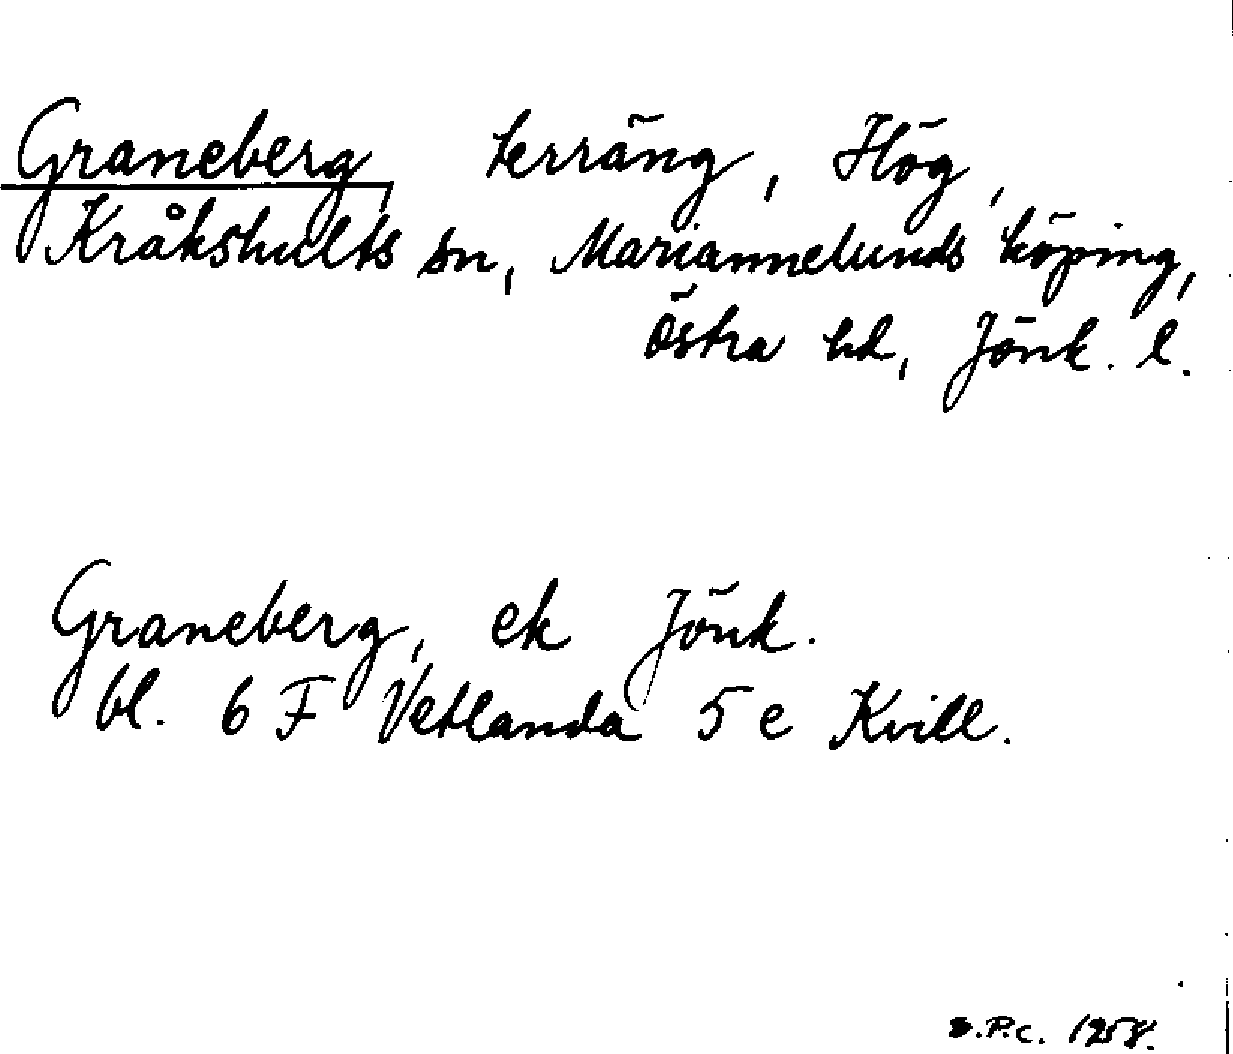 Graneberg, terräng, Hög,
Kråkshults sn, Mariannelunds köping,
Östra hd, Jönk. l.
Graneberg, ek Jönk.
bl. 6 F Vetlanda 5 e Kvill.
P.C. 1958.